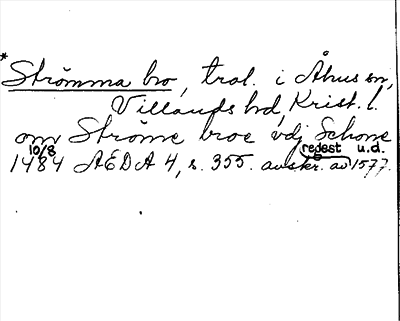 *Strömma bro, trol. i Åhus sn,
Villands hd, Krist. l.
om Strøme broe vdj Schone
10/8 regest u.d.
1484 AEDA 4, s. 355. avskr. av 1577.